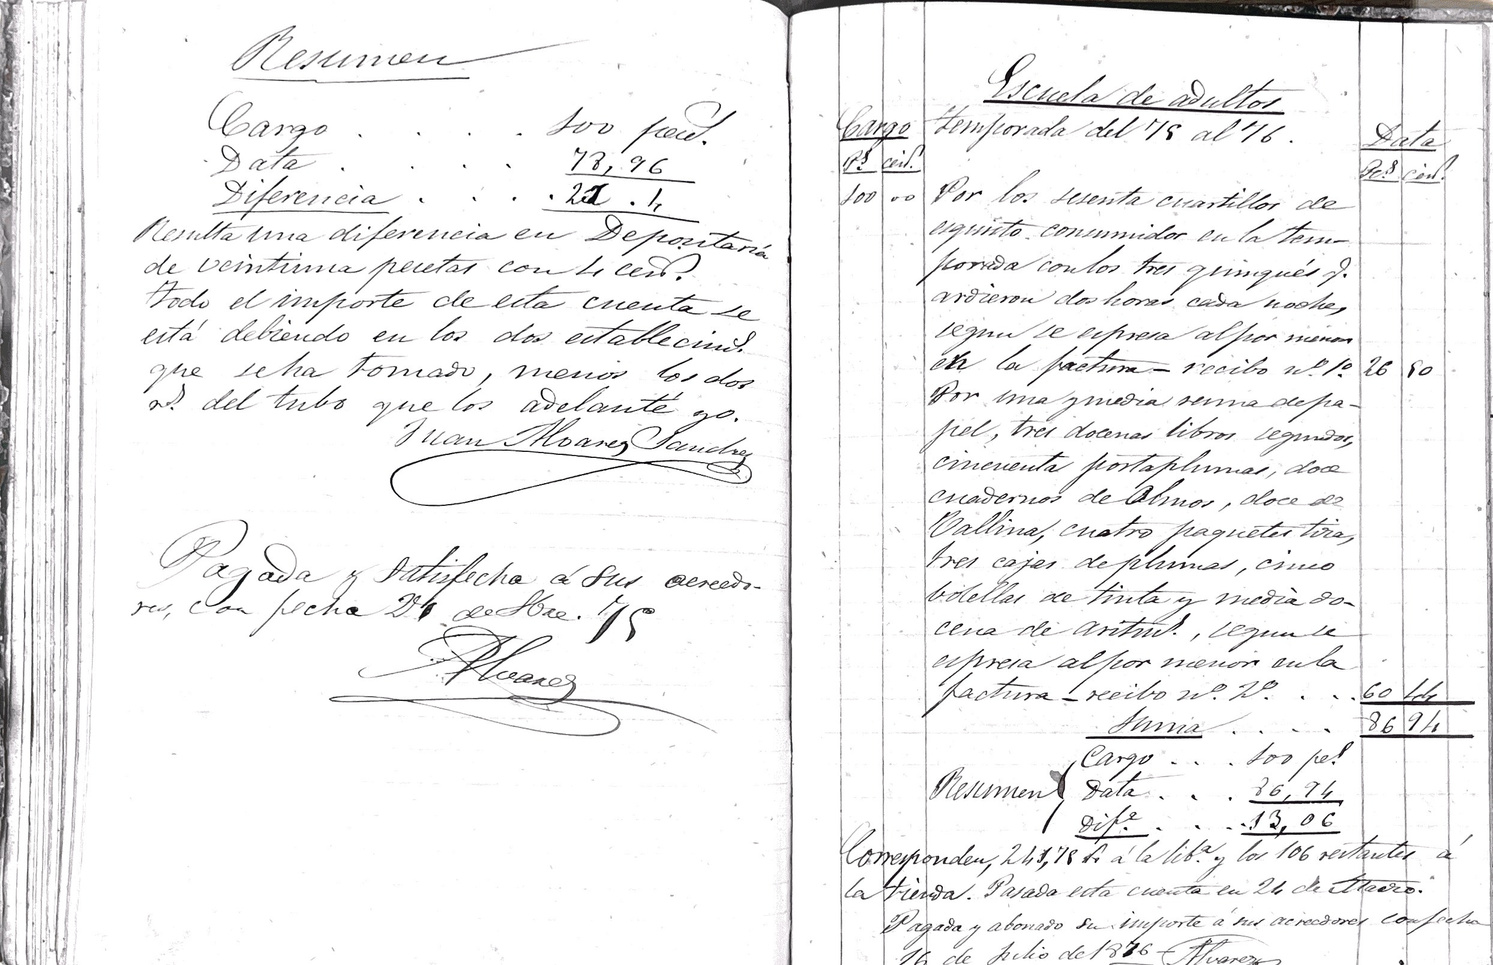 Resumen
Cargo . . . . 100 pest.
Data . . . . 78,96
Diferencia . . . . 21 . 4
Resulta una diferencia en Depositaría
de veintiuna pesetas con 4 cent.
Todo el importe de esta cuenta se
está debiendo en los dos establecimt.
que se ha tomado, menos los dos
rs. del tubo que los adelanté yo.
Juan Alvarez Sanchez
Pagada y satisfecha á sus acreedo-
res, con fecha 21 de Hbre. 75
Alvarez
Escuela de adultos
Cargo Temporada del 75 al 76. Data
Ps. cent. Ps. cent.
100 00 Por los sesenta cuartillos de
esquisto consumidos en la tem-
porada con los tres quinqués q.
ardieron dos horas cada noche,
segun se espresa al por menor
en la factura – recibo nº. 1º 26 50
Por una y media resma de pa-
pel, tres docenas libros segundos,
cincuenta portaplumas, doce
cuadernos de Olmos, doce de
Vallina, cuatro paquetes tiza,
tres cajas de plumas, cinco
botellas de tinta y media do-
cena de aritmt., segun se
espresa al por menor en la
factura – recibo nº. 2º. . . . 60 44
Suma . . . . 86 94
Cargo . . . 100 pest.
Resumen Data . . . 86,94
Difª . . . 13,06
Corresponden, 241,75 r. á la libª. y los 106 restantes á
la tienda. Pasada esta cuenta en 24 de Marzo.
Pagada y abonado su importe á sus acreedores con fecha
16 de Julio de 1876 – Alvarez